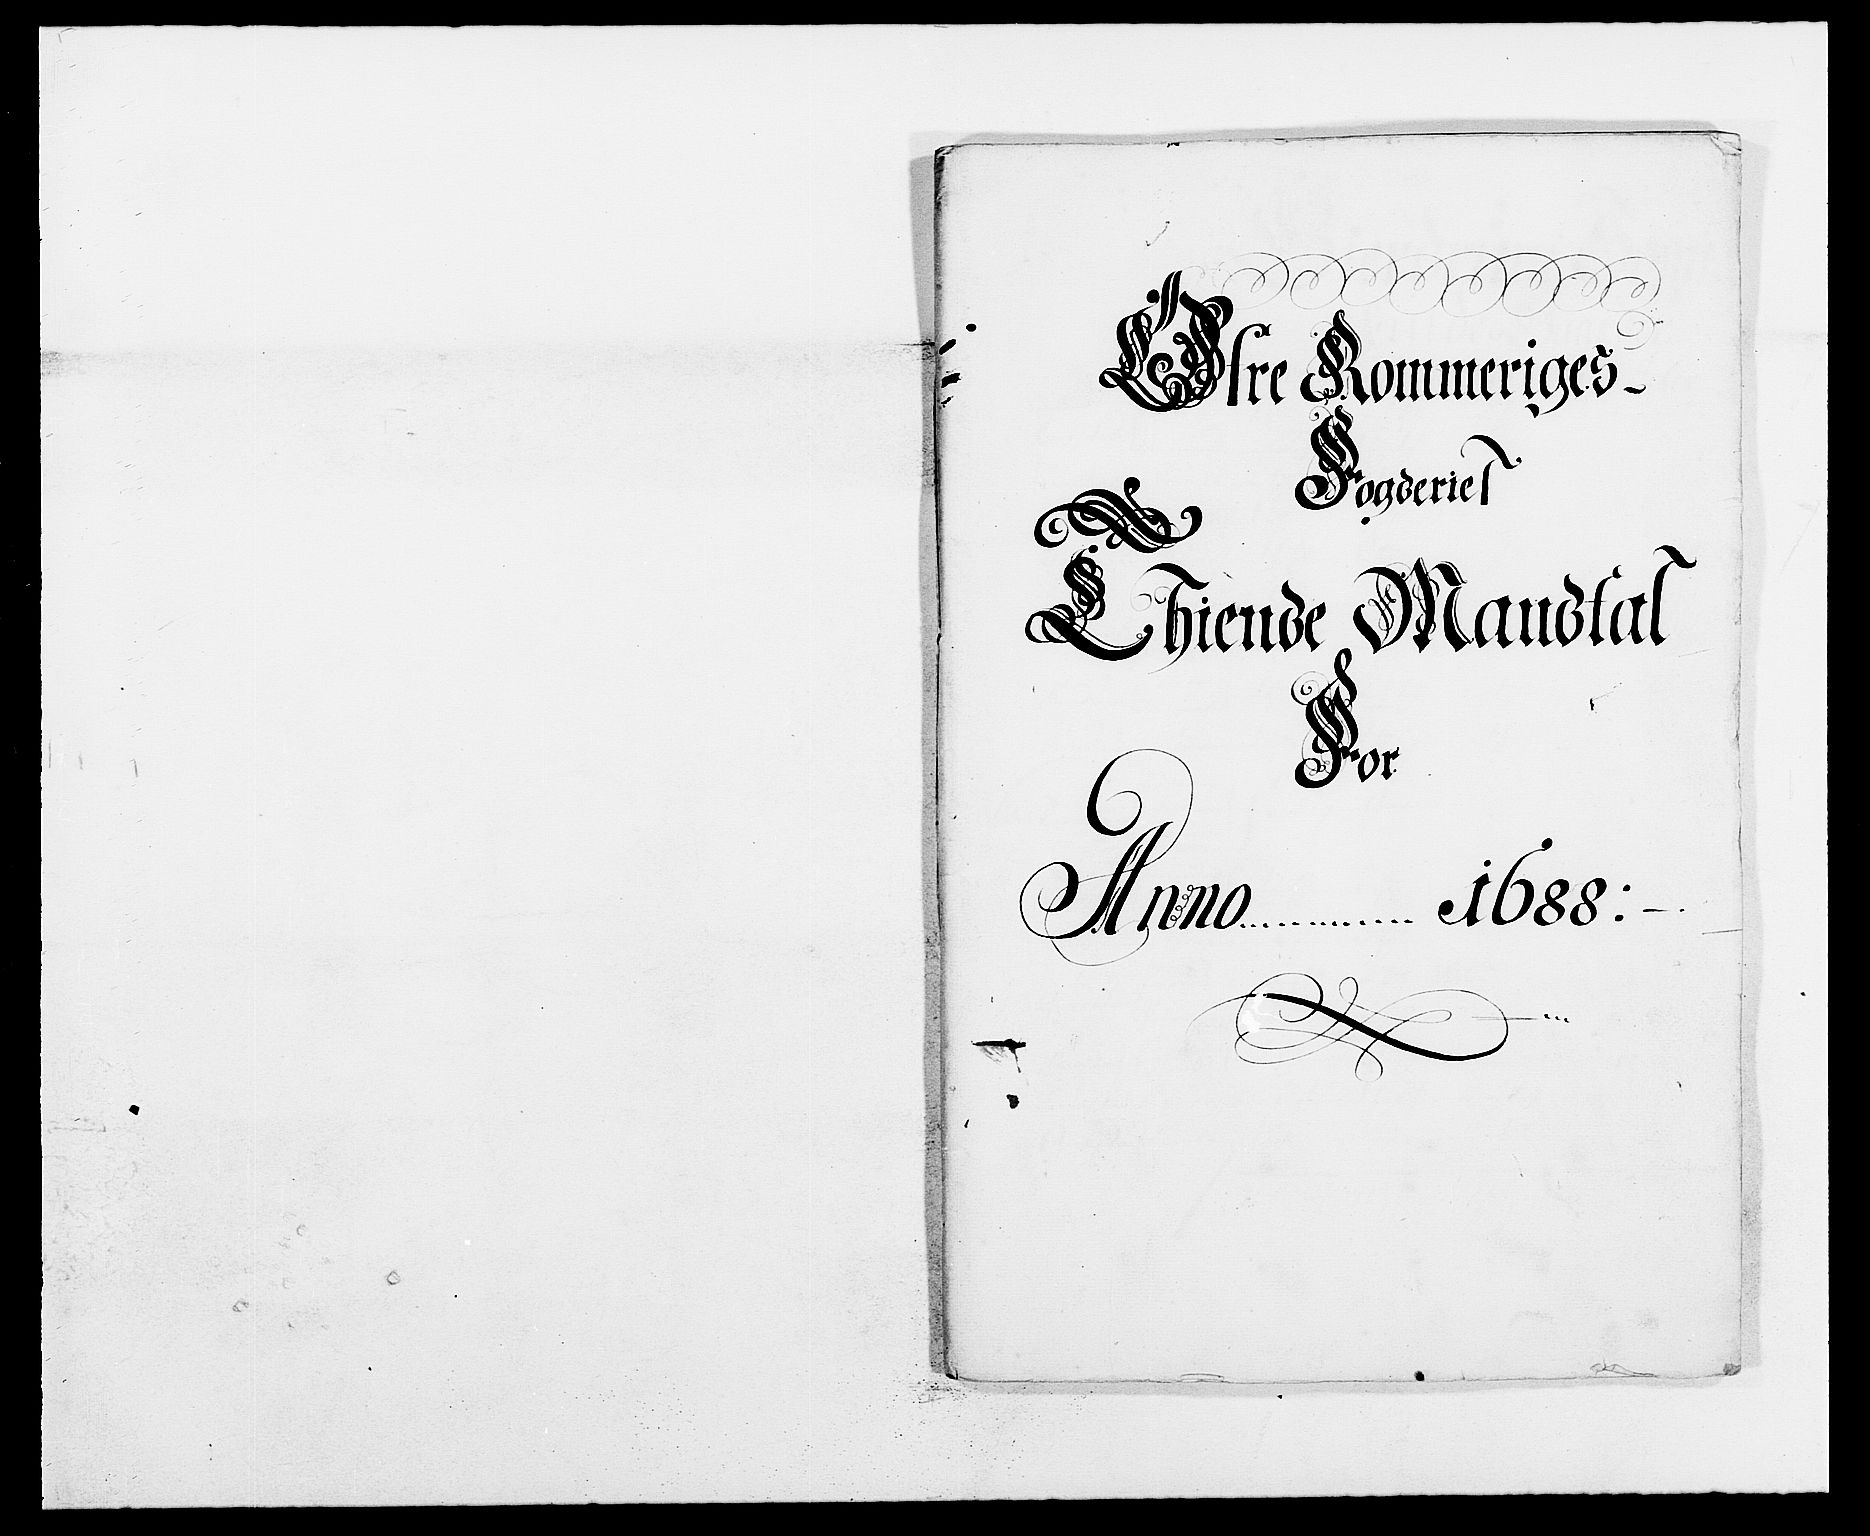 Øfre Rommeriges-
Fogderies
Thiende Mandtal
For
Anno ............ 1688:-